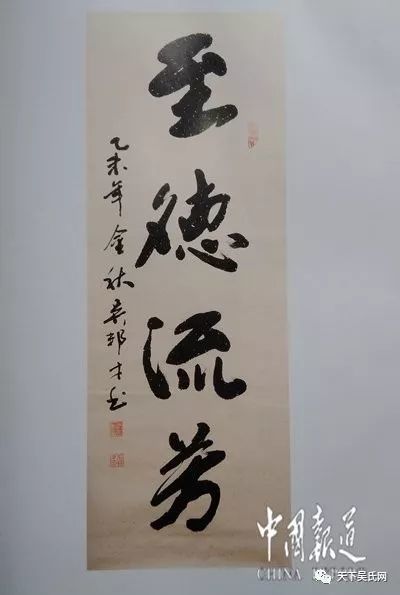 至德流芳
乙未年金秋吴邦才书
中國報道
CHINA
天下吴氏网